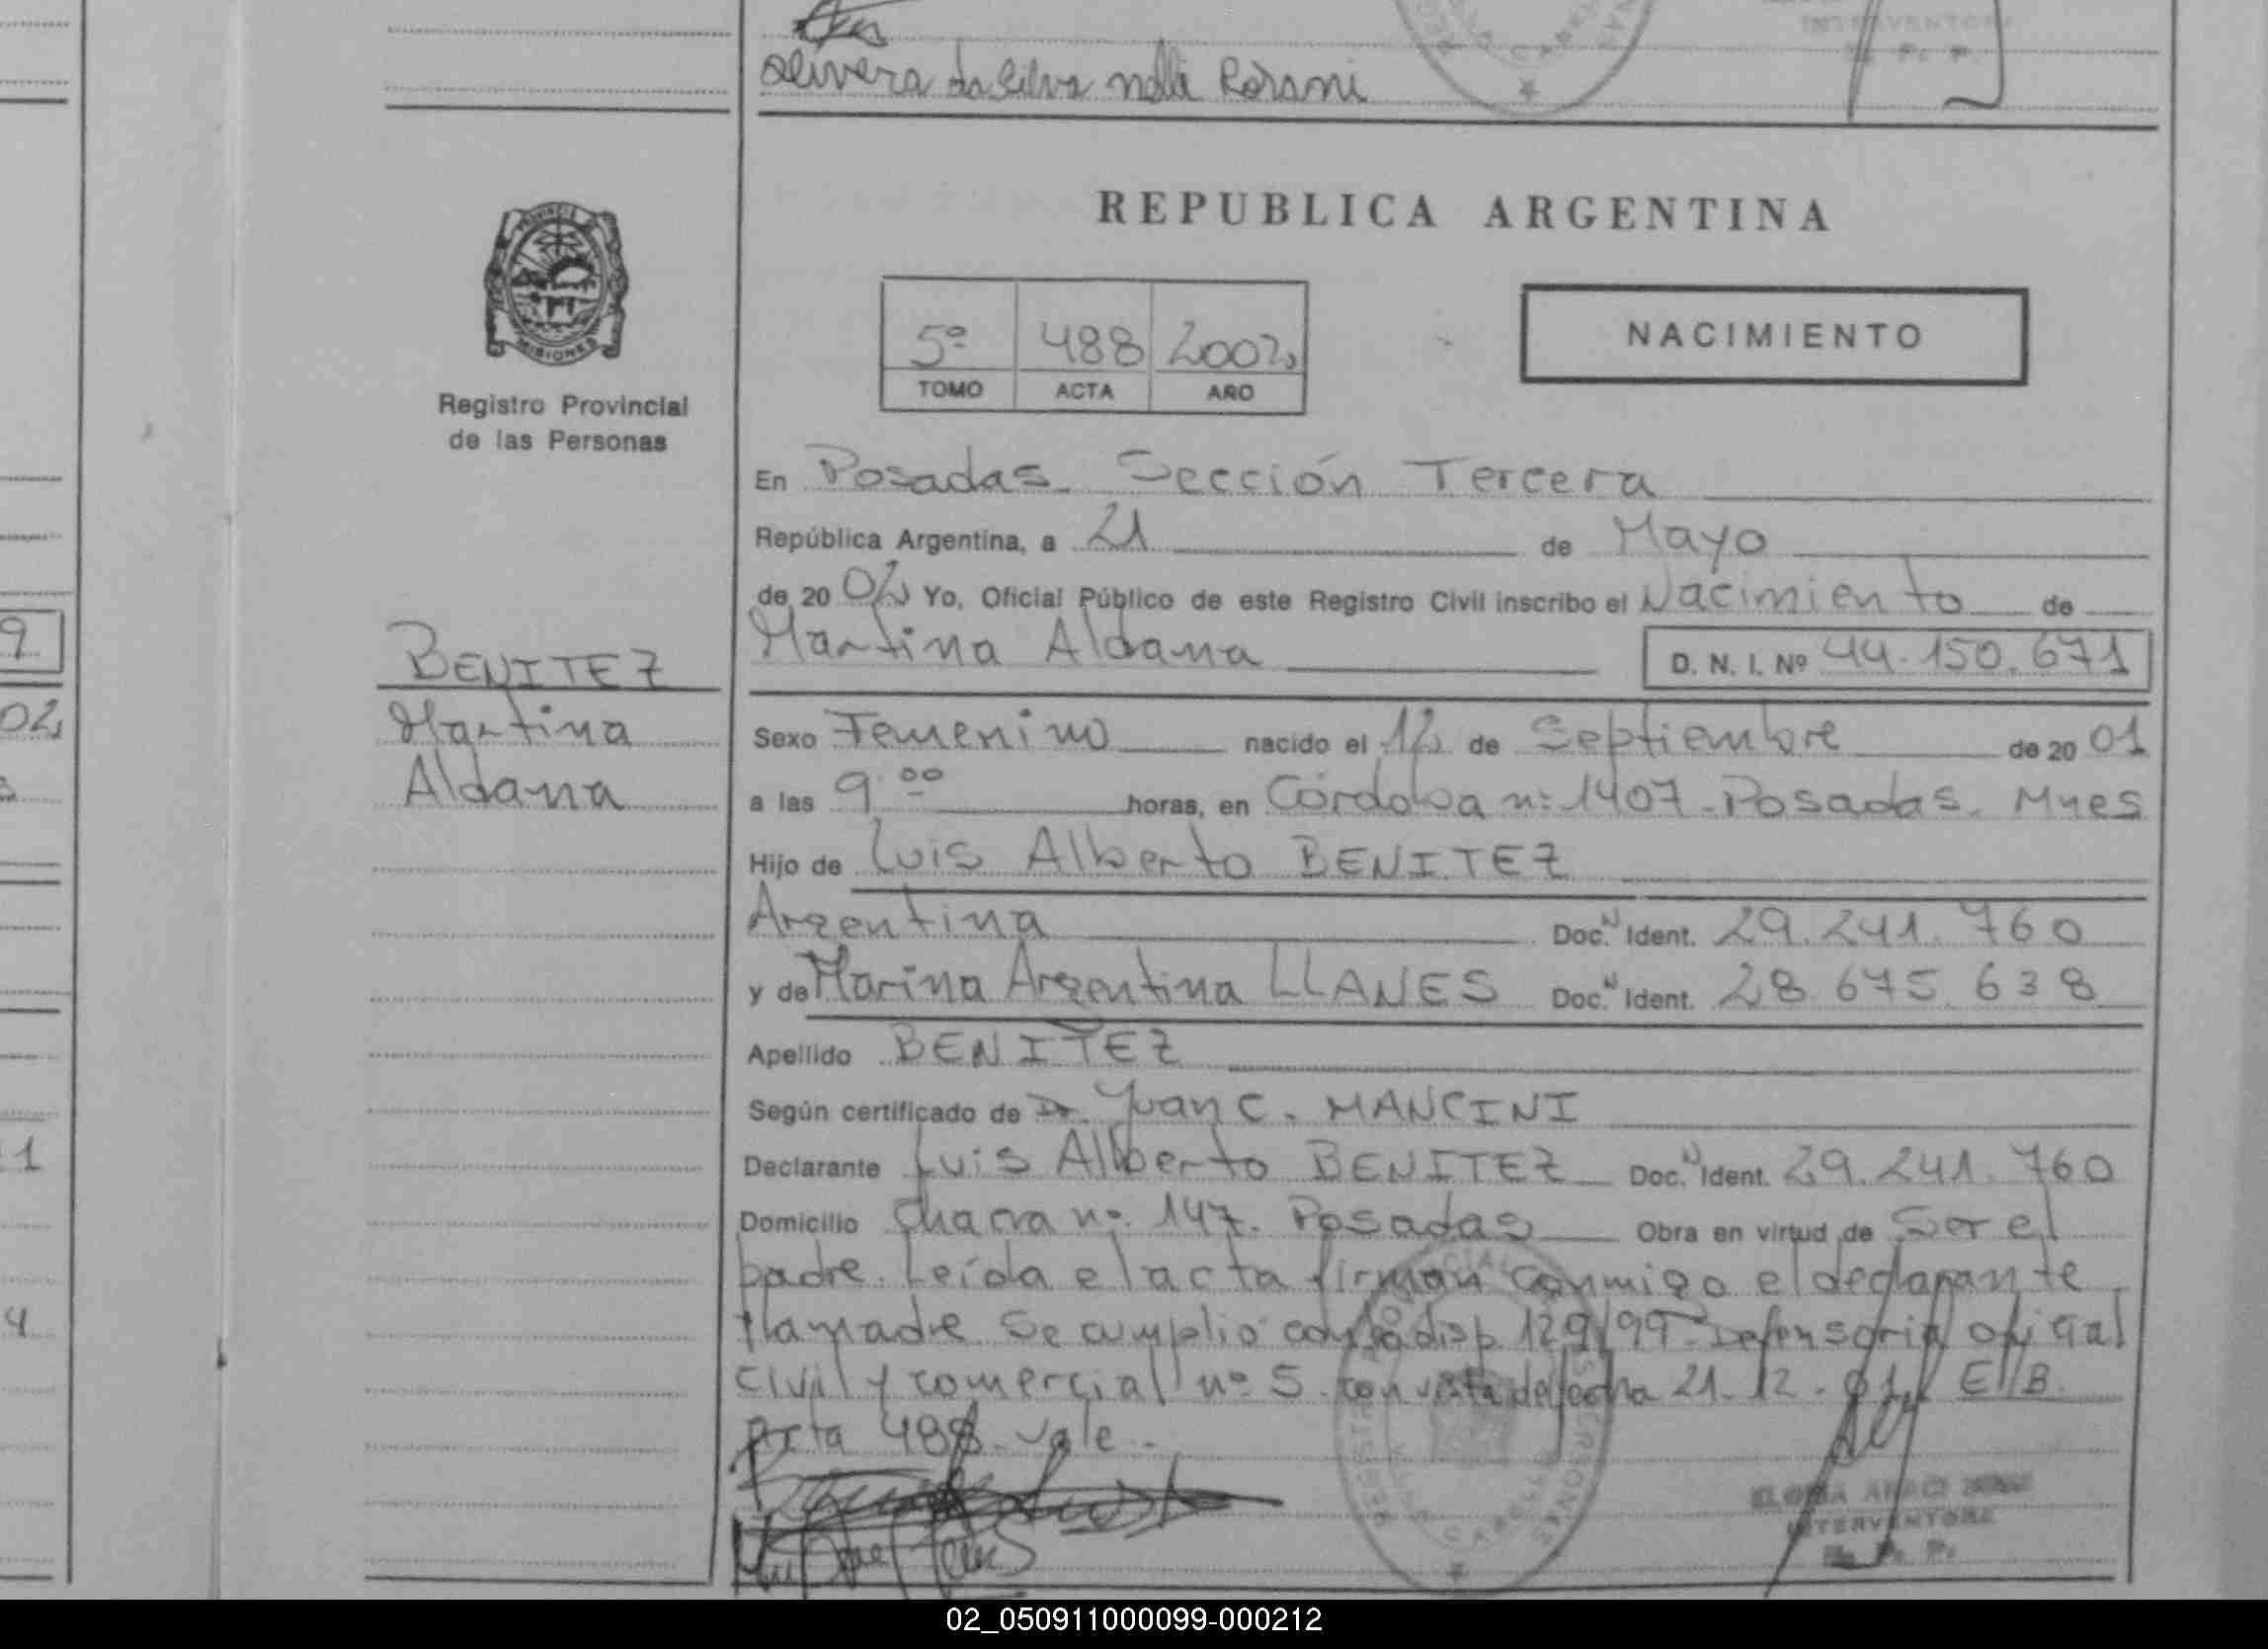 Olivera da Silva
REPUBLICA ARGENTINA
PROVINCIA
MISIONES
Registro Provincial
de las Personas
5º 488 2002
TOMO ACTA AÑO
NACIMIENTO
En Posadas. Sección Tercera
República Argentina, a 21 de Mayo
de 20 02 Yo, Oficial Público de este Registro Civil inscribo el Nacimiento de
Martina Aldana D. N. I. Nº 44.150.671
BENITEZ
Martina
Aldana
Sexo Femenino nacido el 12 de Septiembre de 20 01
a las 9.00 horas, en Córdoba nº 1407 - Posadas. Mnes
Hijo de Luis Alberto BENITEZ
Argentina Doc. N Ident. 29.241.760
y de Marina Argentina LLANES Doc. N Ident. 28 675 638
Apellido BENITEZ
Según certificado de Dr. Juan C. MANCINI
Declarante Luis Alberto BENITEZ Doc. N Ident. 29.241.760
Domicilio Chacra nº 147. Posadas Obra en virtud de Ser el
padre. Leída el acta firman conmigo el declarante
y la madre. Se cumplió con la disp 129/99 - Defensoría oficial
civil y comercial nº 5. con vista de fecha 21.12.01 E/B
Acta 488 - vale -
INTERVENTORA
9
02
1
4
02_050911000099-000212